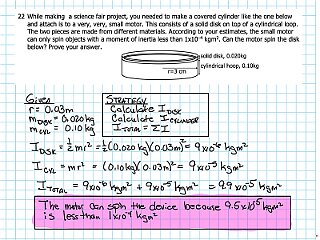 22 While making a science fair project, you needed to make a covered cylinder like the one below
and attach is to a very, very, small motor. This consists of a solid disk on top of a cylindrical loop.
The two pieces are made from different materials. According to your estimates, the small motor
can only spin objects with a moment of inertia less than 1x10⁻⁴ kgm². Can the motor spin the disk
below? Prove your answer.
solid disk, 0.020kg
cylindrical hoop, 0.10kg
r=3 cm
Given
r = 0.03m
m DISK = 0.020kg
m CYL = 0.10 kg
STRATEGY
Calculate I DISK
Calculate I CYLINDER
I TOTAL = ΣI
I DISK = ½mr² = ½(0.020kg)(0.03m)² = 9x10⁻⁶ kgm²
I CYL = mr² = (0.10kg)(0.03m)² = 9x10⁻⁵ kgm²
I TOTAL = 9x10⁻⁶ kgm² + 9x10⁻⁵ kgm² = 9.9x10⁻⁵ kgm²
The motor can spin the device because 9.5x10⁻⁵ kgm²
is less than 1x10⁻⁴ kgm²